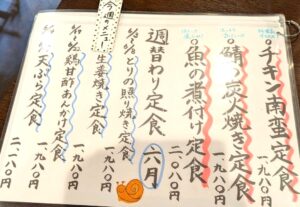 今週のメニュー
○チキン南蛮定食
一、九八〇円
○鯖の炭火焼き定食
一、九八〇円
○魚の煮付け定食
二、〇八〇円
週替わり定食 六月
とりの照り焼き定食
一、九八〇円
生姜焼き定食
一、九八〇円
鶏甘酢あんかけ定食
一、九八〇円
天ぷら定食
二、一八〇円